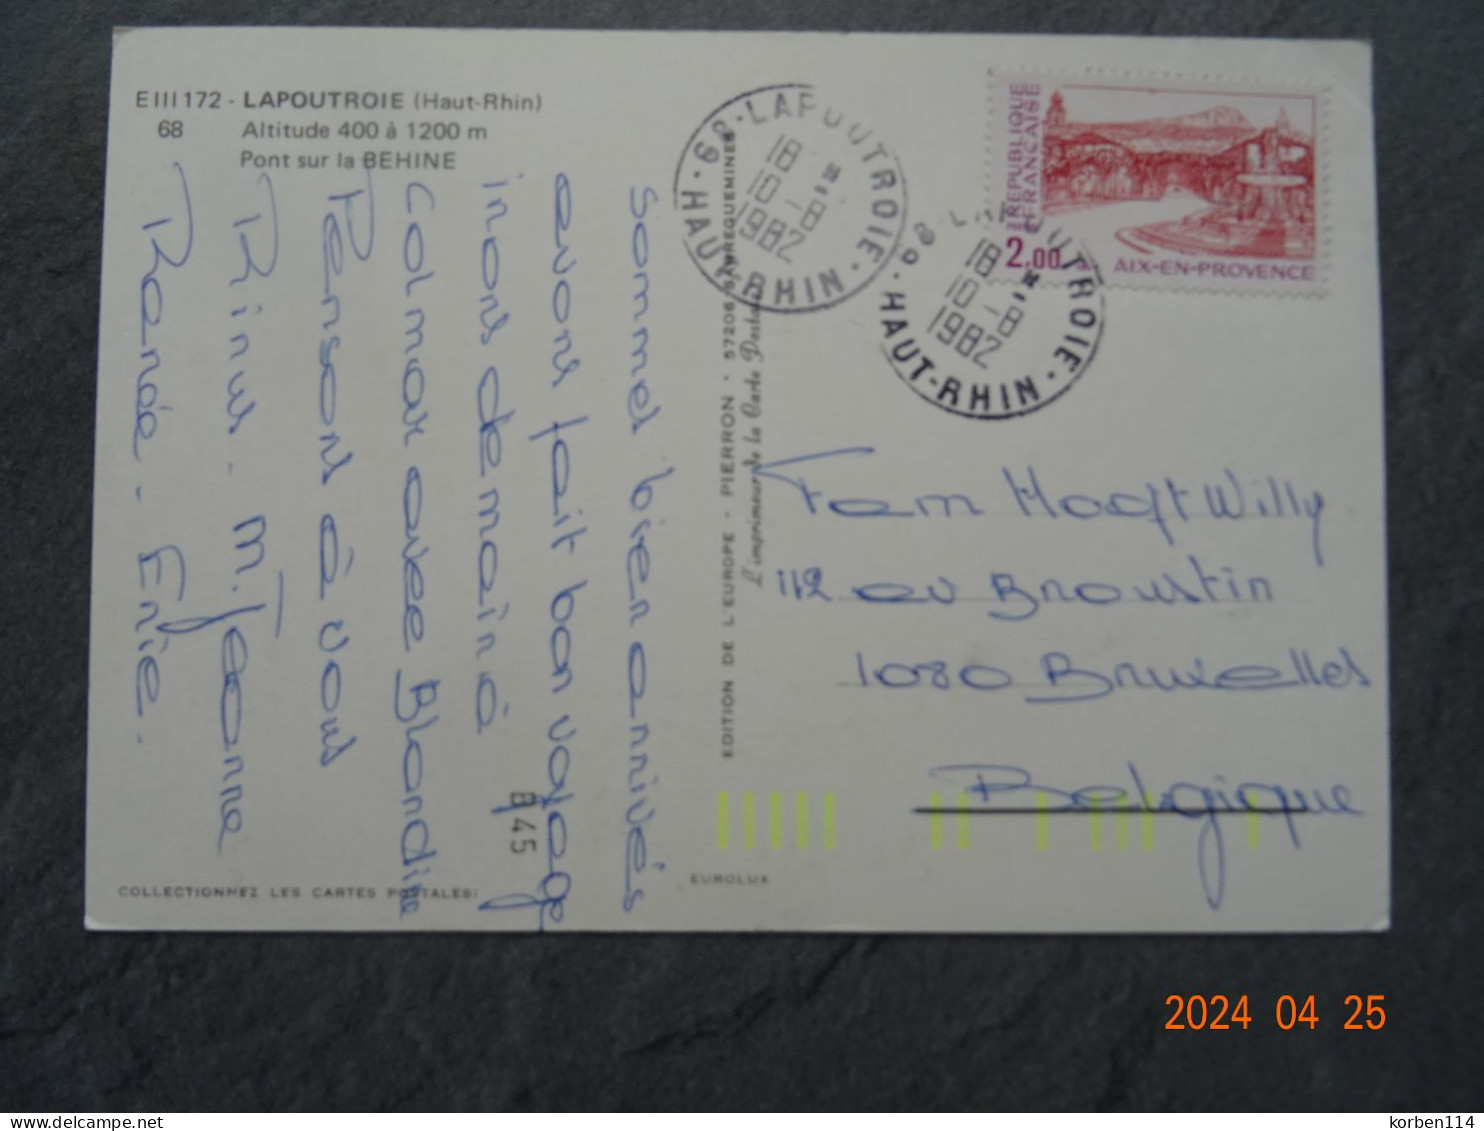 EIII172 - LAPOUTROIE (Haut-Rhin)
68 Altitude 400 à 1200 m
Pont sur la BEHINE
sommes bien arrivés
avons fait bon voyage
irons demain à
Colmar avec Blandine
Pensons à vous
Rinus. M. Jeanne
Renée. Enie.
COLLECTIONNEZ LES CARTES POSTALES:
B 45
EDITION DE L'EUROPE - PIERRON - 57206 SARREGUEMINES
L'imprimeur de la Carte Postale
EUROLUX
68 - LAPOUTROIE
18 H
10 - 8
1982
HAUT-RHIN
68 LAPOUTROIE
18 H
10 - 8
1982
HAUT-RHIN
REPUBLIQUE
FRANCAISE
2,00
AIX-EN-PROVENCE
Fam Hooft Willy
112 av Broustin
1080 Bruxelles
Belgique
2024 04 25
korben114